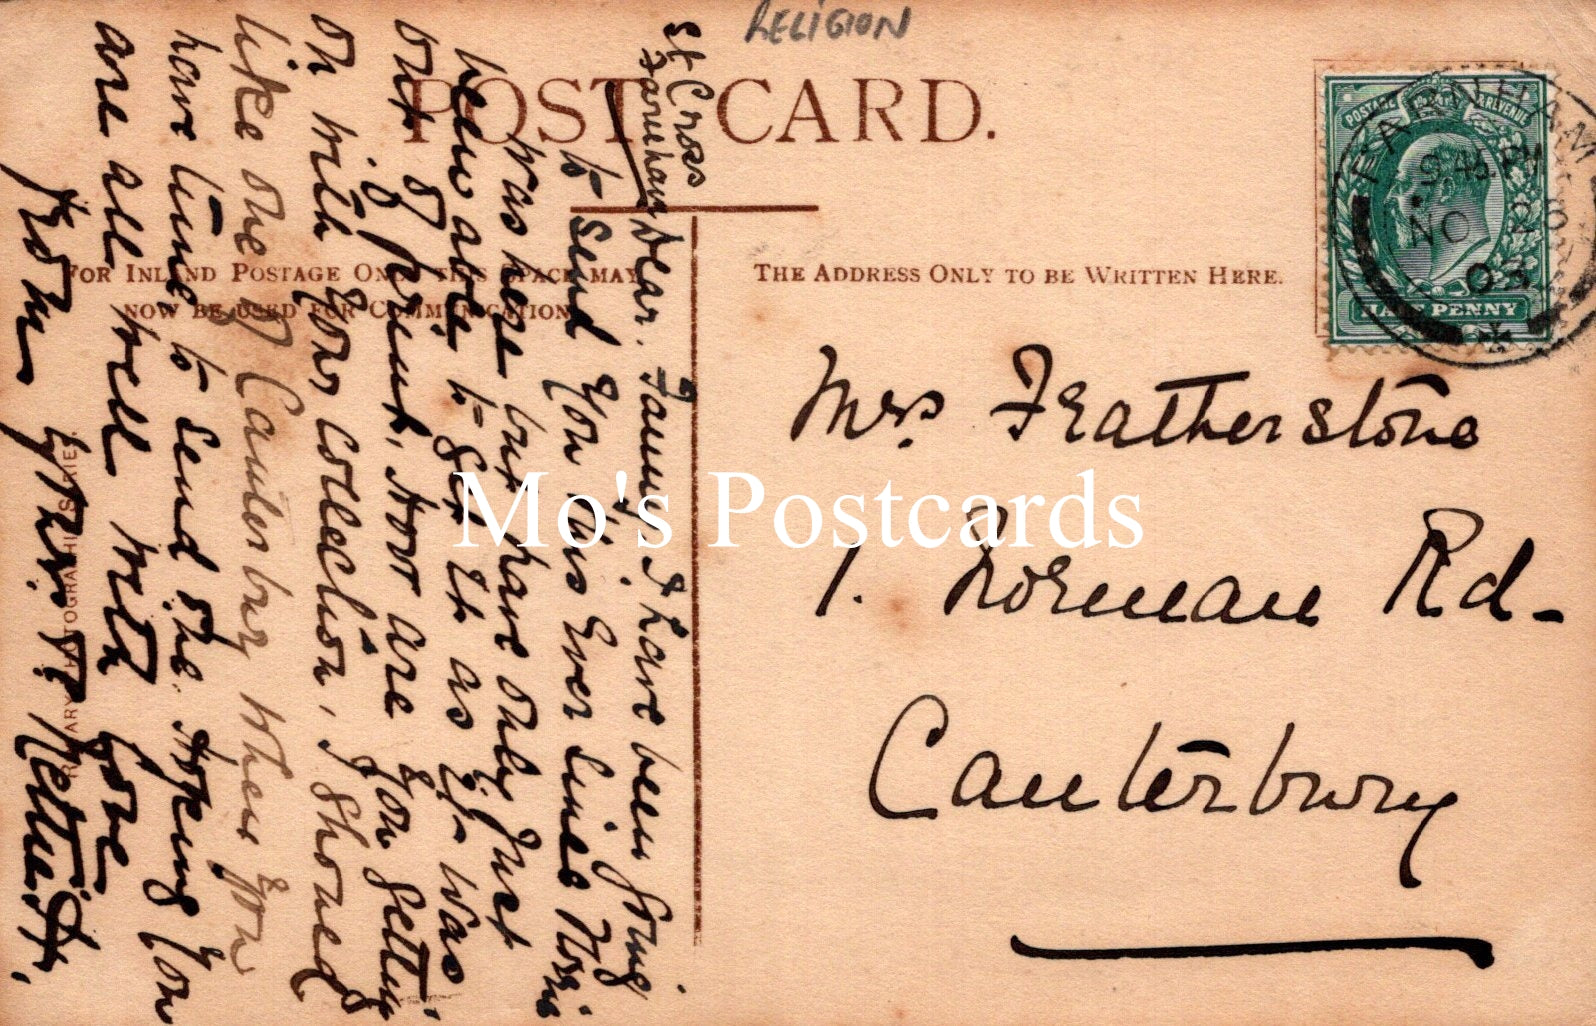 RELIGION
POST CARD.
FOR INLAND POSTAGE ONLY THIS SPACE MAY
NOW BE USED FOR COMMUNICATION.
THE ADDRESS ONLY TO BE WRITTEN HERE.
POSTAGE REVENUE
HALF PENNY
FARNHAM
9.45 PM
NO 26
03
Mrs Featherstone
1. Norman Rd-
Canterbury
St Cross
Farnham
Dear Fanny I have been going
to send you this ever since
was here but have only just
been able to get it as it was
out of print, How are you getting
on with your collection, I should
like one of Canterbury when you
have time to send one. Hoping you
are all well with love
from yours
ROTARY PHOTOGRAPHIC SERIES.
Mo's Postcards